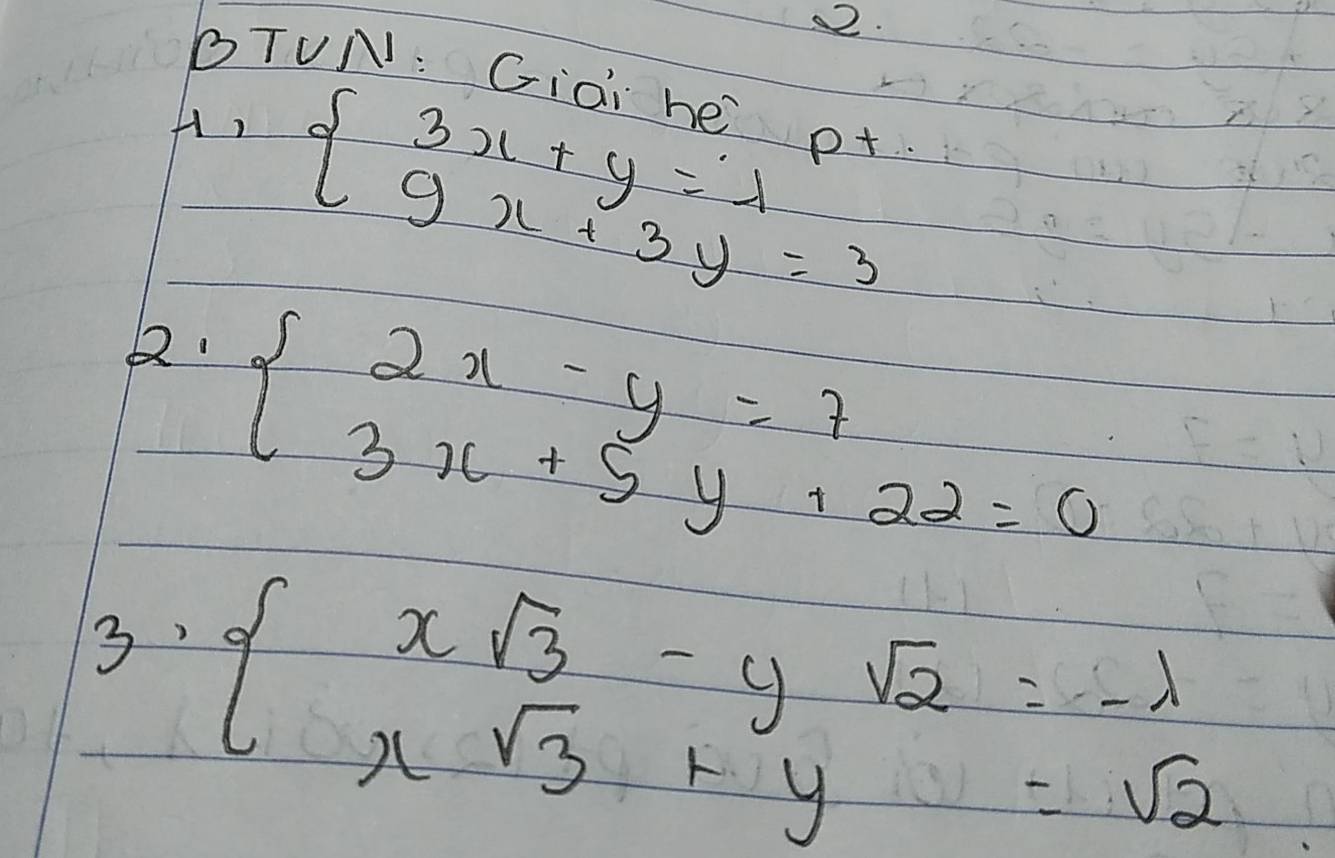 2.
BTVN: Giải hệ pt.
1, { 3x + y = 1
9x + 3y = 3
2. { 2x - y = 7
3x + 5y + 22 = 0
3. { x√3 - y√2 = -1
x√3 + y = √2